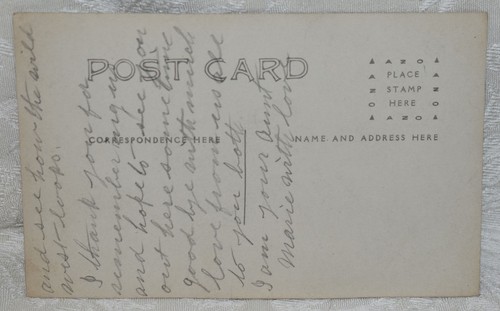 POST CARD
AZO
PLACE
STAMP
HERE
AZO
CORRESPONDENCE HERE
NAME AND ADDRESS HERE
and see how the wild
west looks.
I thank you for
remembering me
and hope to see you
out here some time
Good bye with much
love from us all
to you both
I am your Aunt
Marie with love